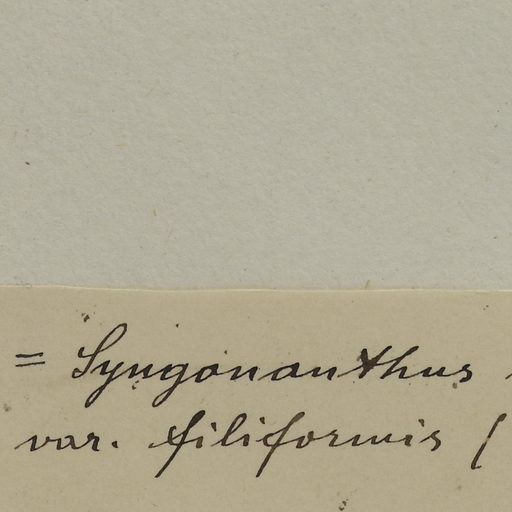 = Syngonanthus
var. filiformis (